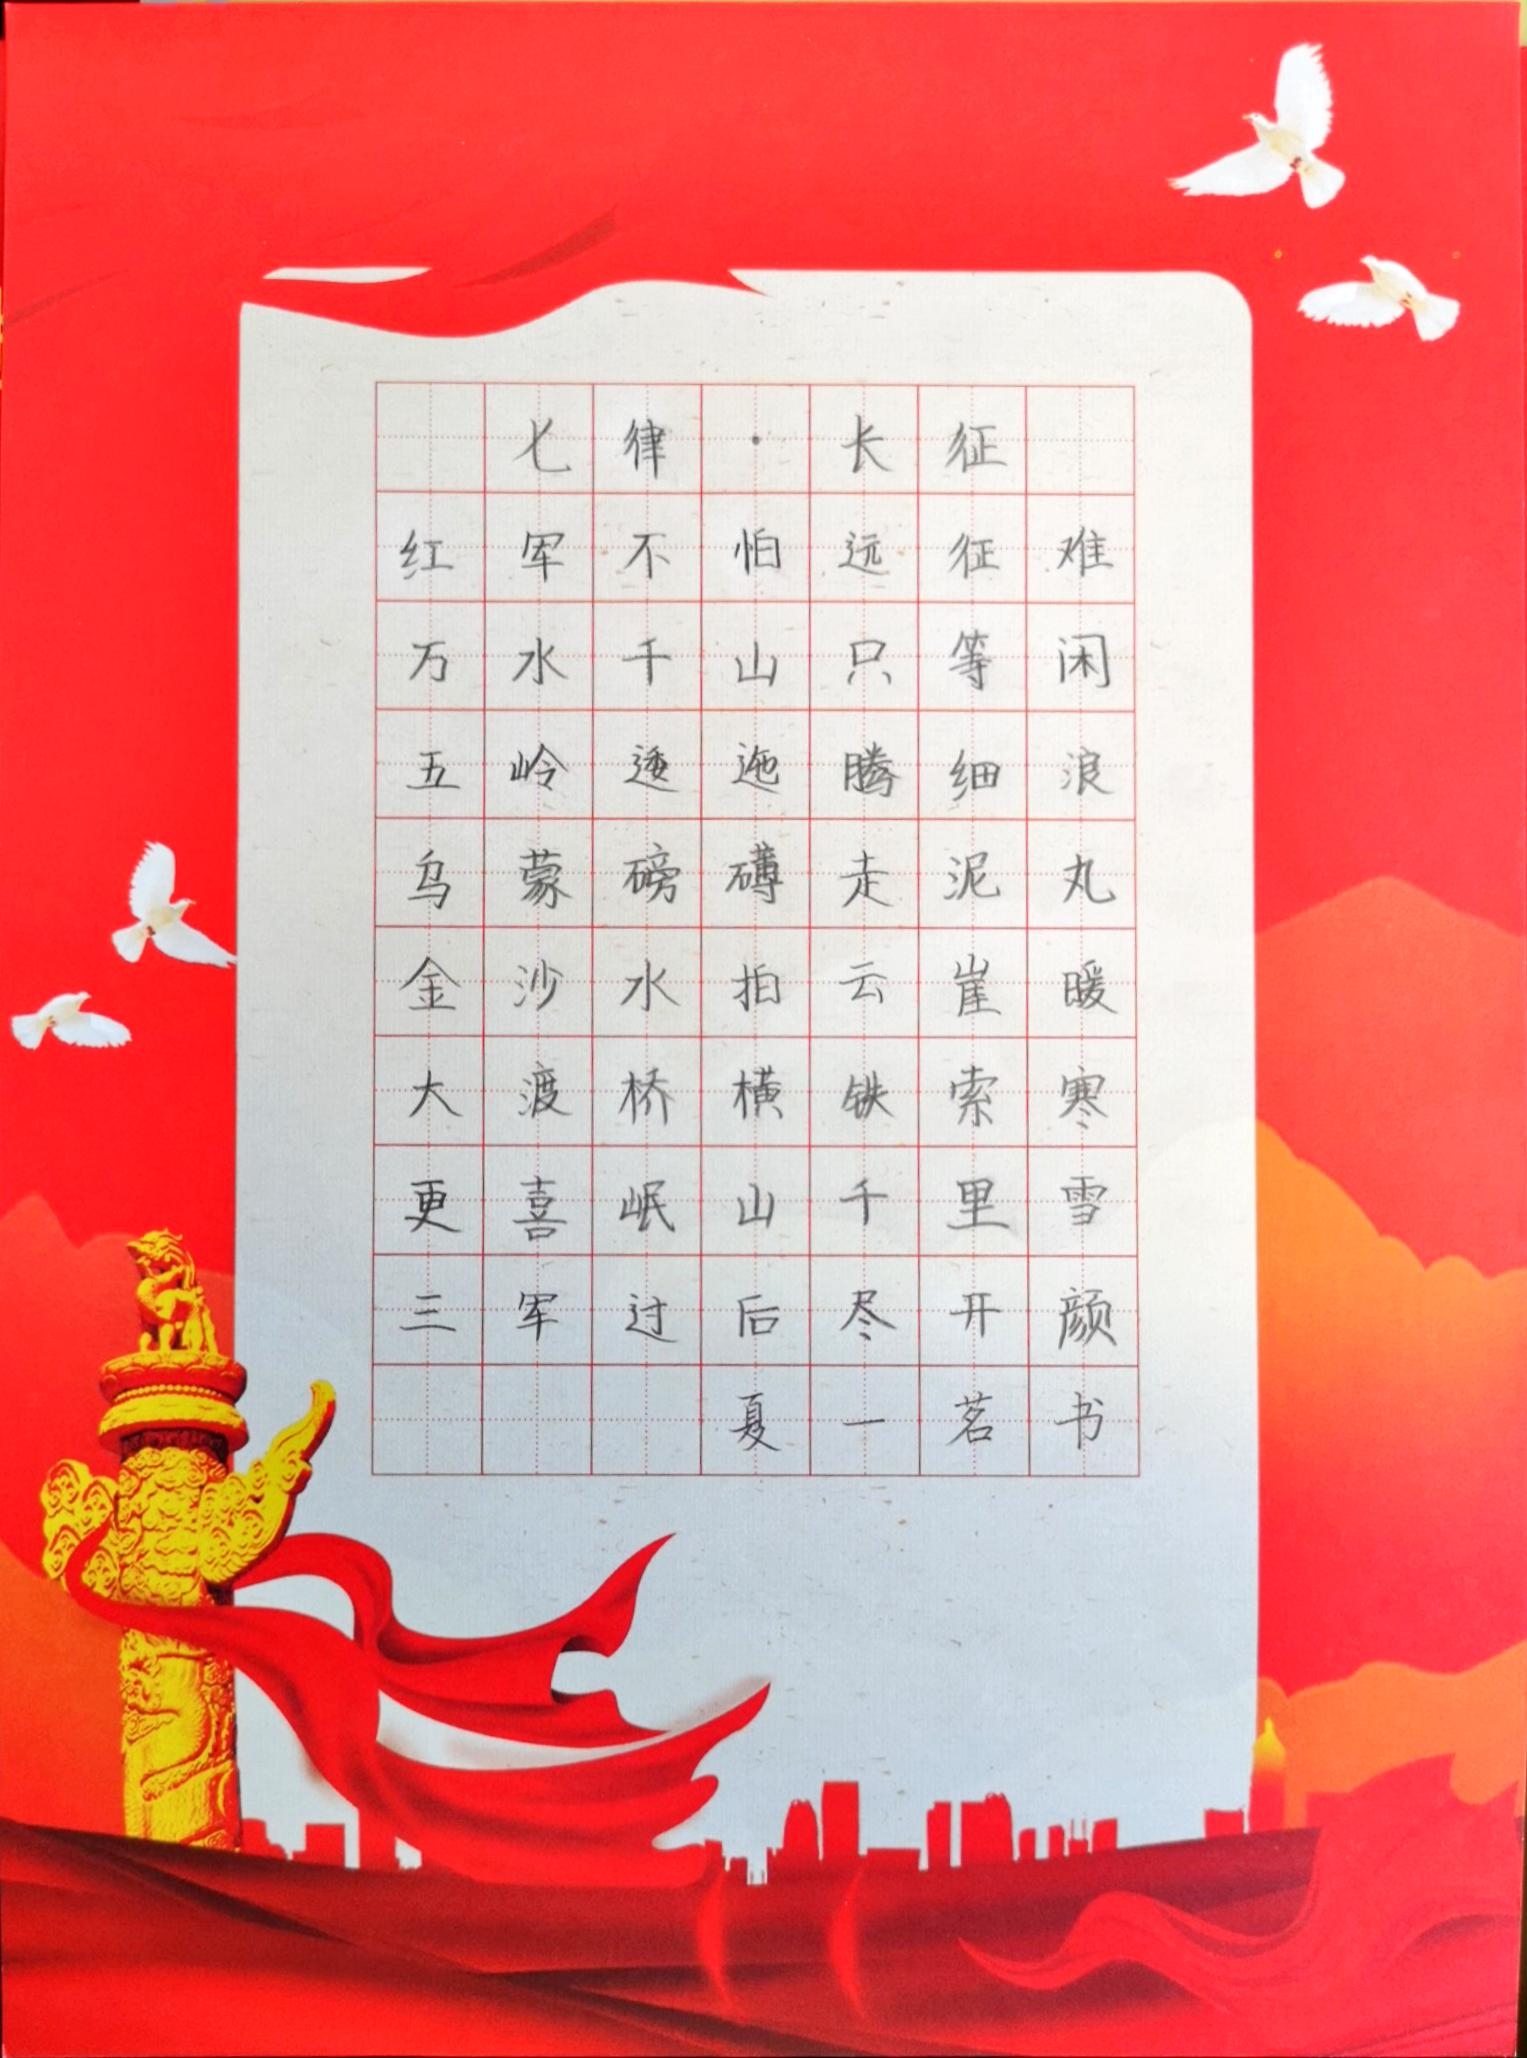 七律·长征
红军不怕远征难
万水千山只等闲
五岭逶迤腾细浪
乌蒙磅礴走泥丸
金沙水拍云崖暖
大渡桥横铁索寒
更喜岷山千里雪
三军过后尽开颜
夏一茗书